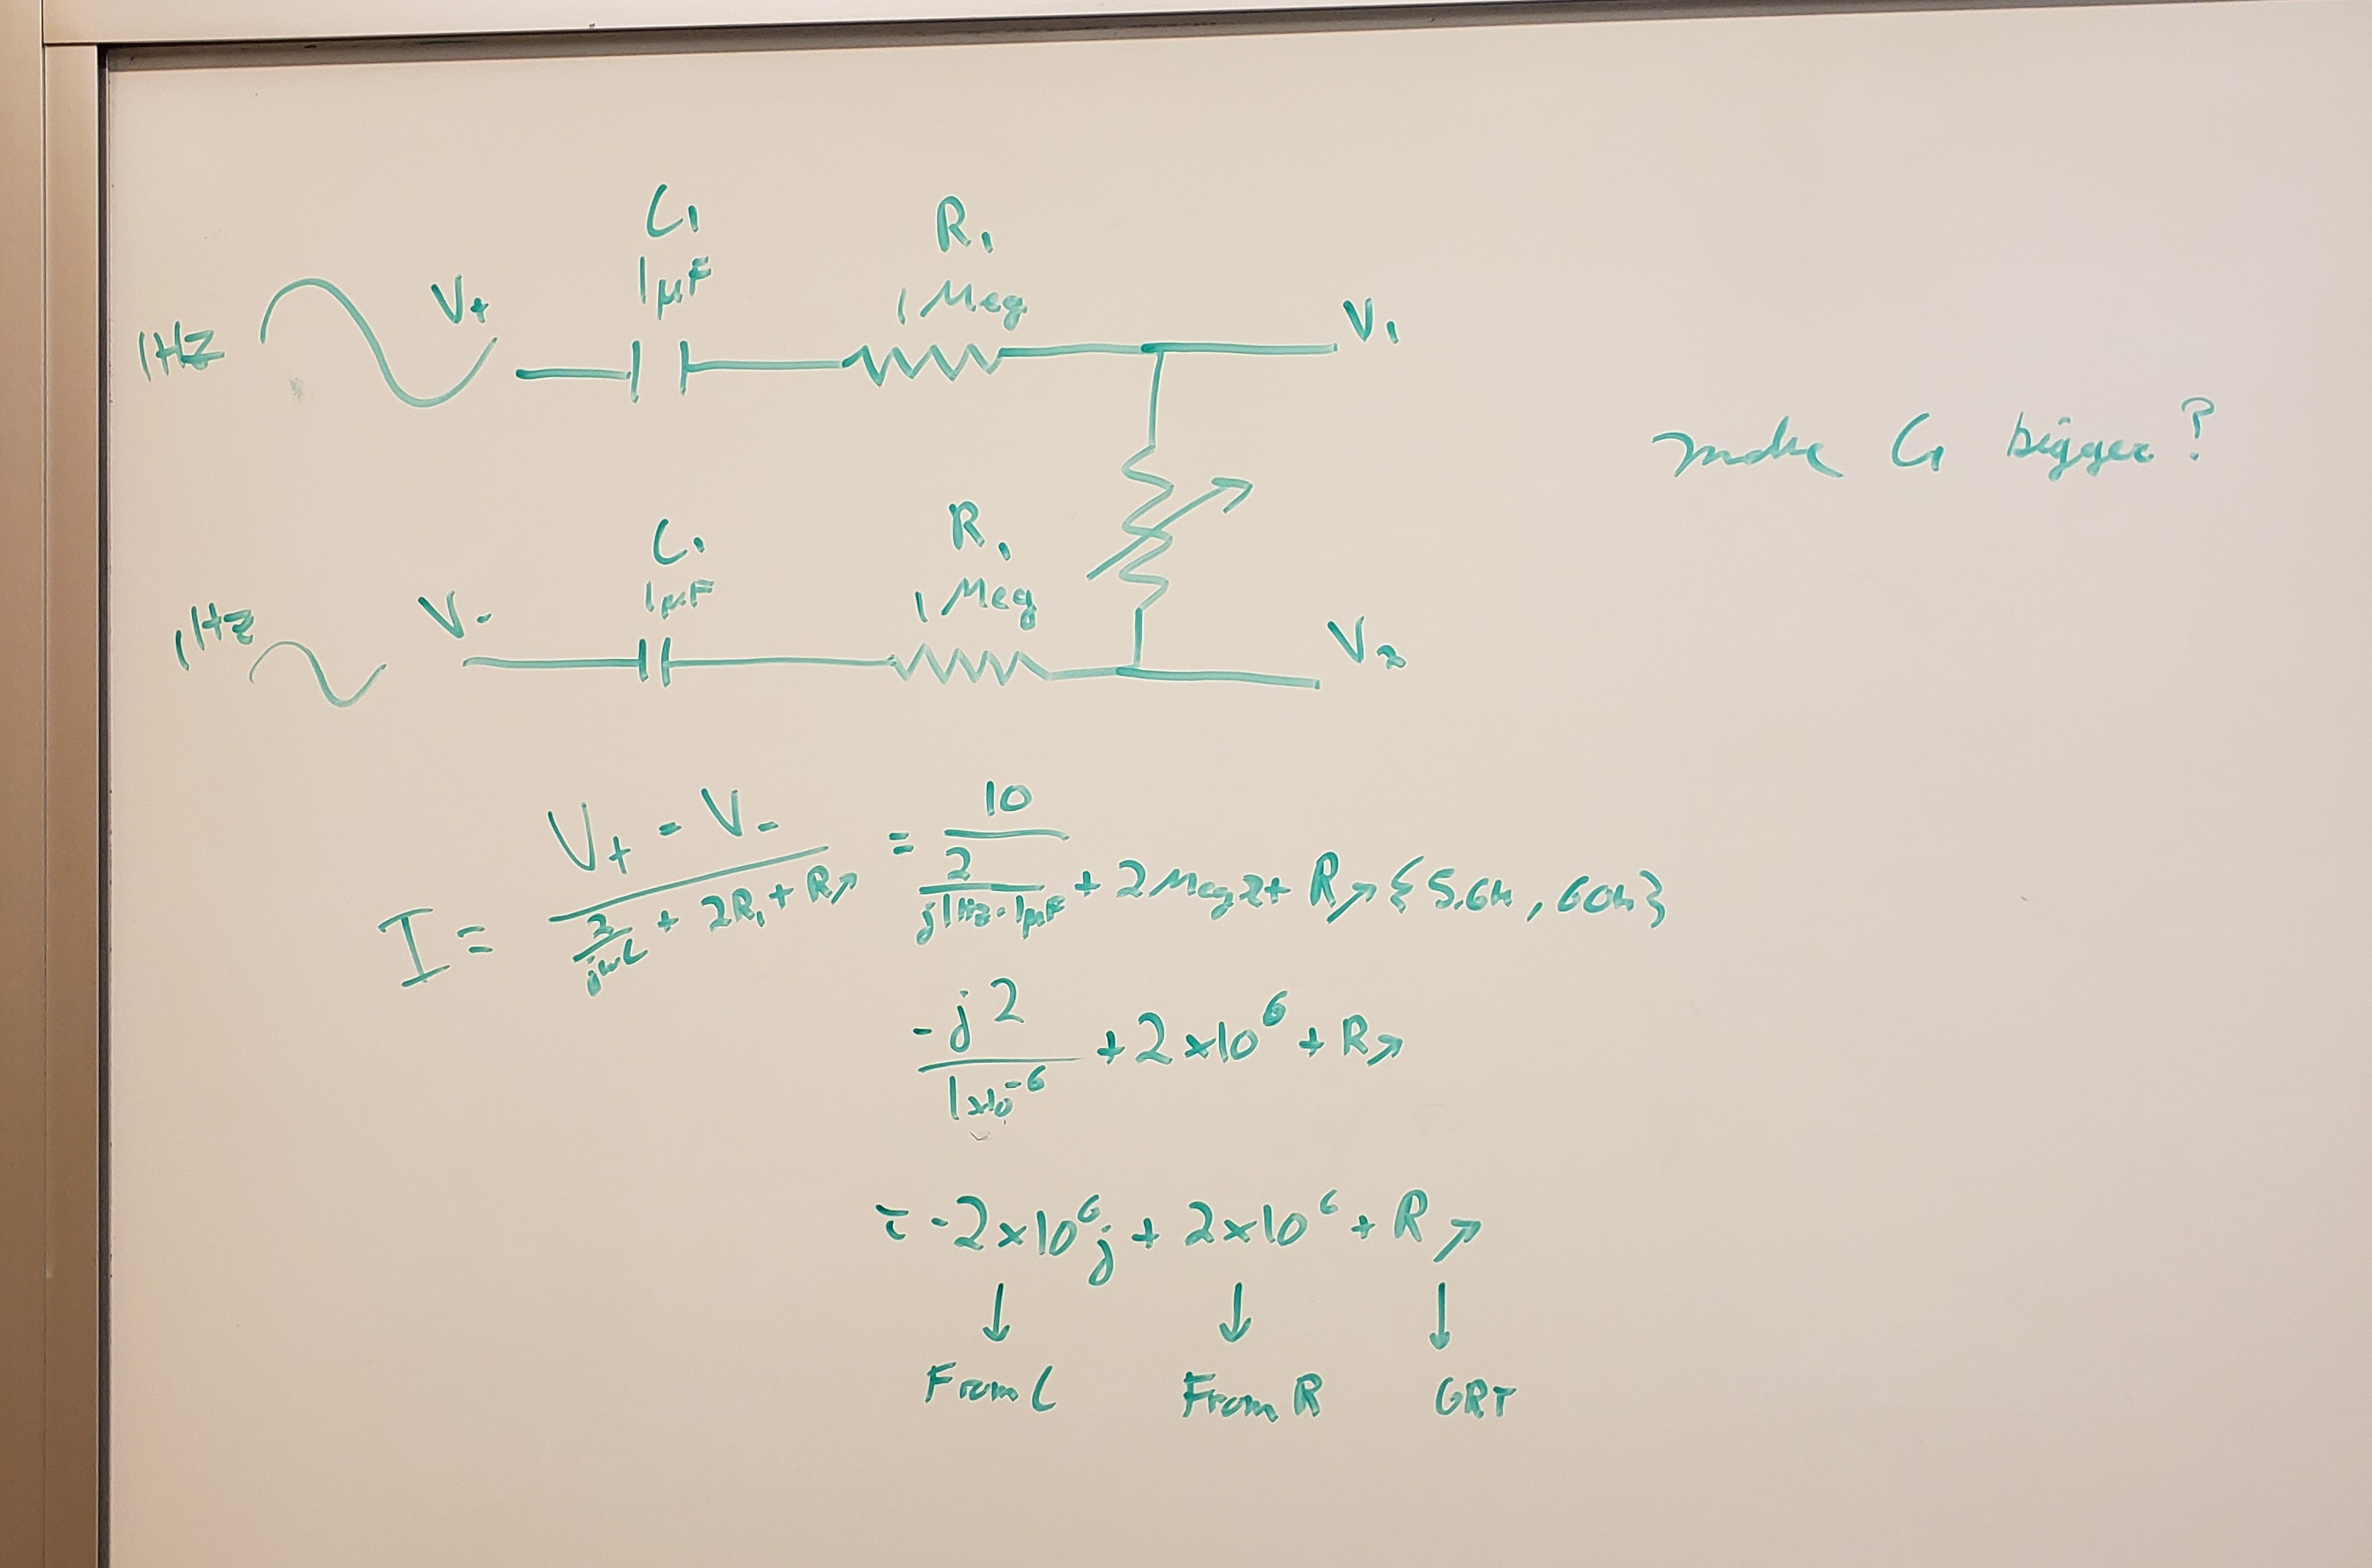 C1
1µF
R1
1 Meg
1Hz
V+
V1
make C1 bigger?
C1
1µF
R1
1 Meg
1Hz
V-
V2
I = (V+ - V-) / (2/jωC + 2R1 + R↗) = 10 / (2/(j1Hz·1µF) + 2Meg + R↗ {5.6k, 60k}
-j2 / 1x10^-6 + 2x10^6 + R↗
= -2x10^6 j + 2x10^6 + R↗
↓ ↓ ↓
From C From R GRT